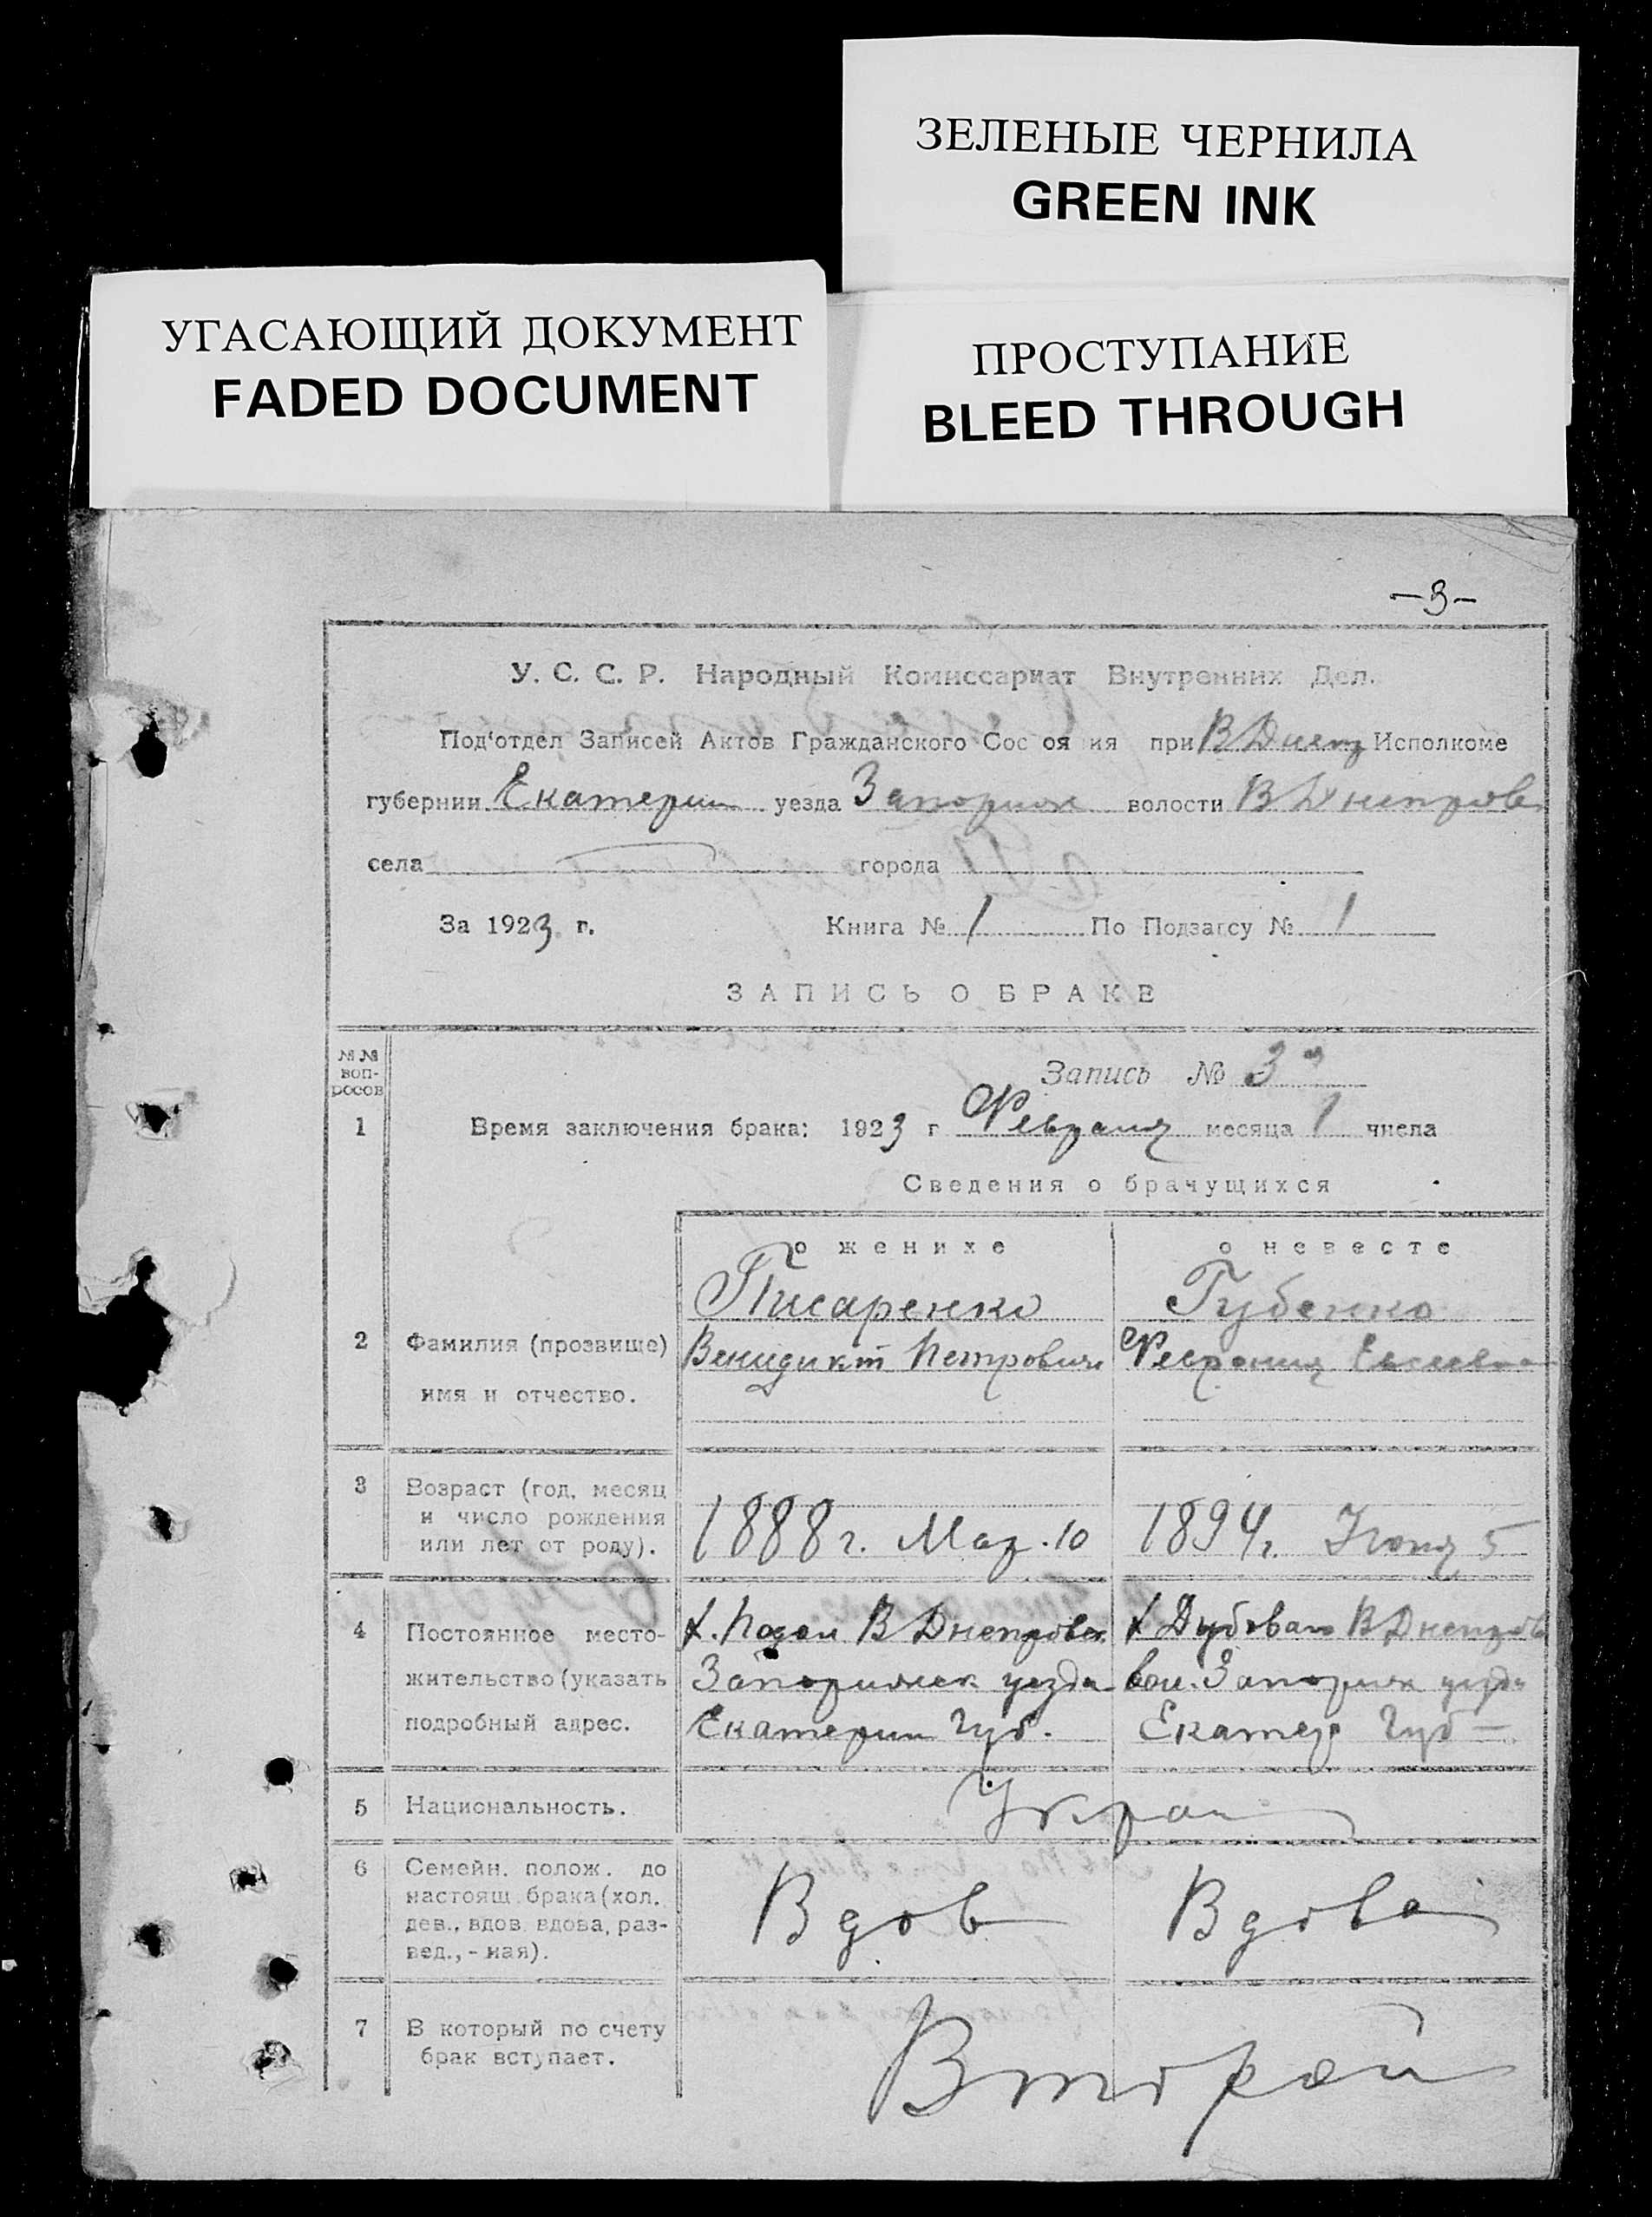 ЗЕЛЕНЫЕ ЧЕРНИЛА
GREEN INK
УГАСАЮЩИЙ ДОКУМЕНТ
FADED DOCUMENT
ПРОСТУПАНИЕ
BLEED THROUGH
У. С. С. Р. Народный Комиссариат Внутренних Дел.
Под‘отдел Записей Актов Гражданского Сос оя ия при В Днеп Исполкоме
губернии Екатерин уезда Запорож волости В Днепров
села города
За 1923 г. Книга № 1 По Подзагсу № 1
ЗАПИСЬ О БРАКЕ
№№ воп-росов
Запись № 3
1 Время заключения брака: 1923 г Февраля месяца 1 числа
Сведения о брачущихся
о женихе о невесте
Писаренко Губенко
2 Фамилия (прозвище) Венидикт Петрович Феврония
имя и отчество.
3 Возраст (год, месяц
и число рождения 1888 г. Мая. 10 1894 г. Июня 5
или лет от роду).
4 Постоянное место- х. В Днепровск х В Днепров
жительство (указать Запорожск уезда вол. Запорож уезда
подробный адрес. Екатерин губ. Екатер губ
5 Национальность. Украи
6 Семейн. полож. до
настоящ. брака (хол. Вдов Вдова
дев., вдов. вдова, раз-
вед., - ная).
7 В который по счету Второй
брак вступает.